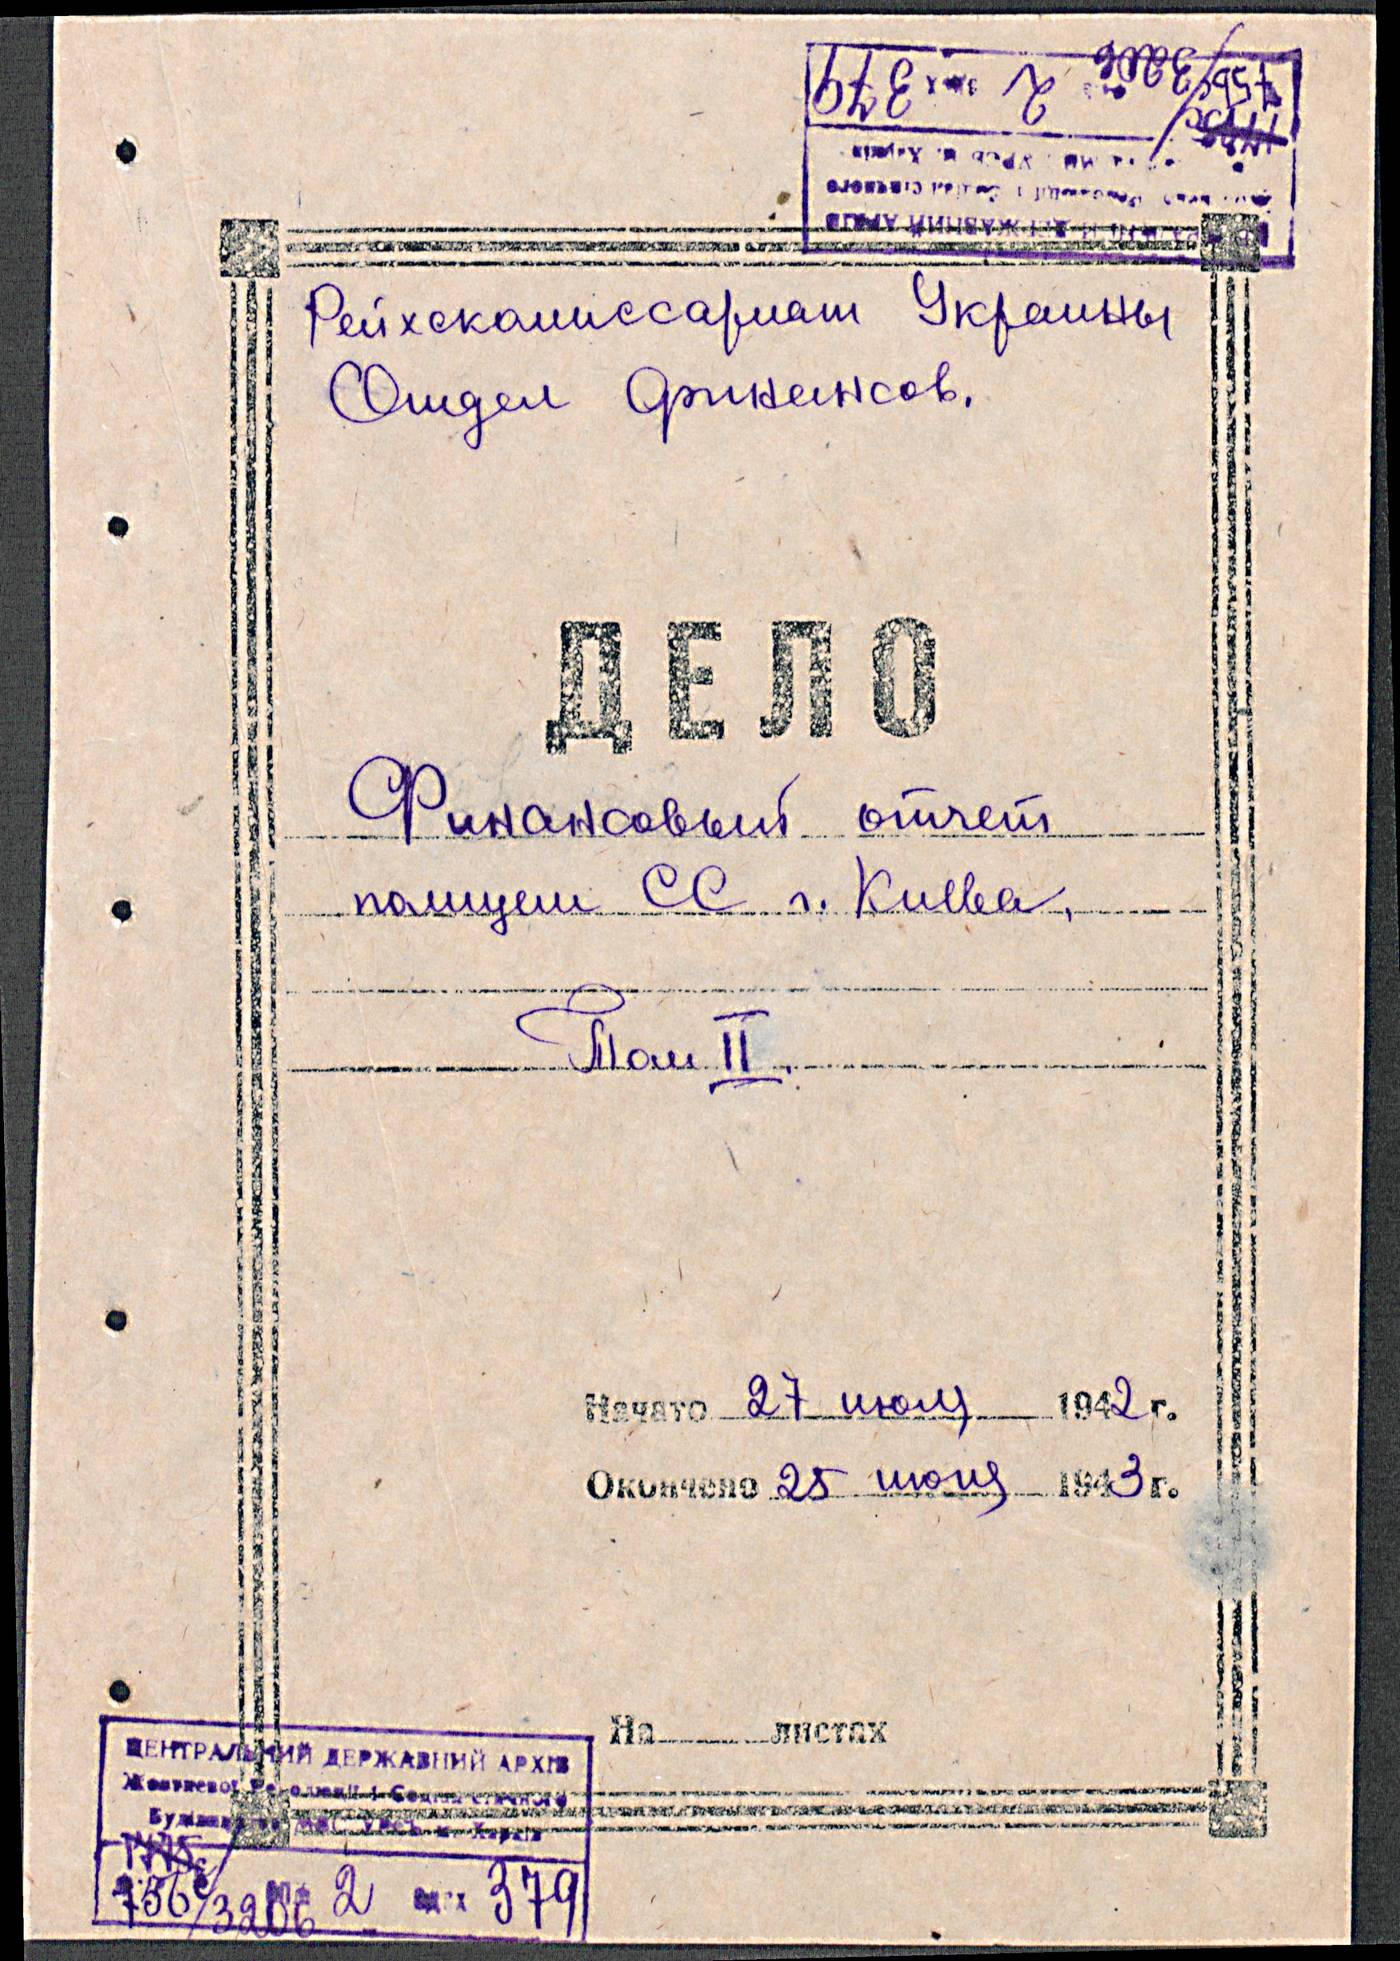 379
2
Рейхскомиссариат Украины
Отдел финансов.
ДЕЛО
Финансовый отчет
полиции СС г. Киева,
Том II.
Начато 27 июля 1942 г.
Окончено 25 июня 1943 г.
На листах
ЦЕНТРАЛЬНИЙ ДЕРЖАВНИЙ АРХІВ
Жовтневої Революції і Соціалістичного
Будівництва МВС УРСР м. Харків
3206 оп. 2 одзх 379